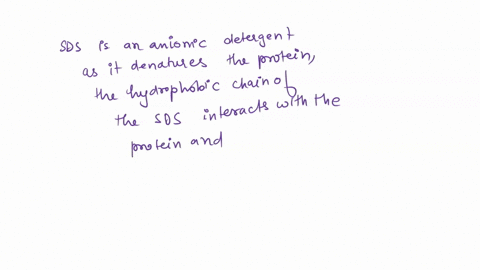 SDS is an anionic detergent
as it denatures the protein,
the hydrophobic chain of
the SDS interacts with the
protein and